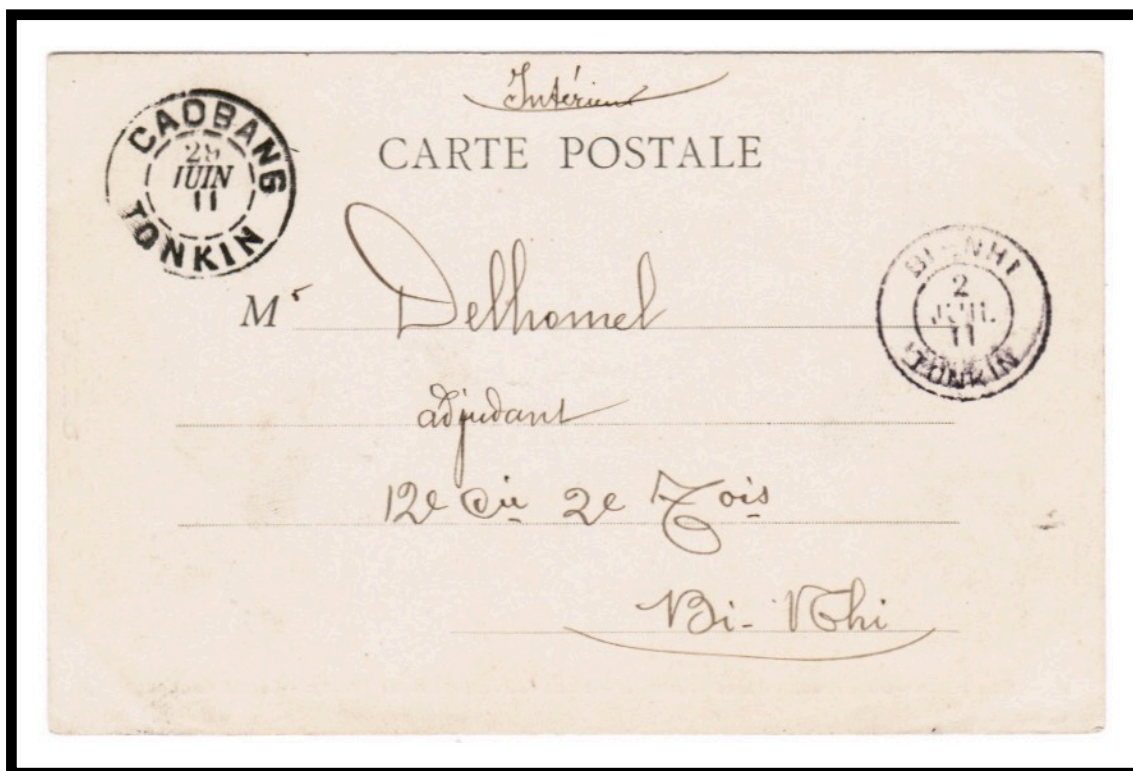 Intérieur
CARTE POSTALE
CAOBANG
29
JUIN
11
TONKIN
BI-NHI
2
JUIL.
11
TONKIN
Mr Delhomel
adjudant
12e Cie 2e Tois
Bi-Nhi